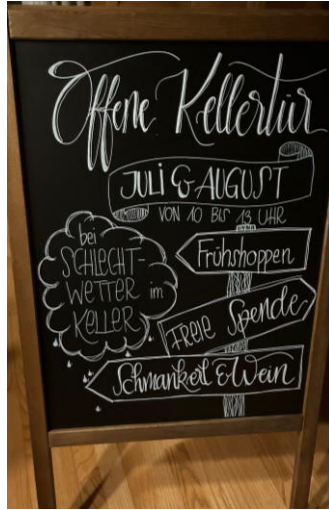 Offene Kellertür
JULI & AUGUST
VON 10 BIS 13 UHR
bei
SCHLECHT-
WETTER im
KELLER
Frühshoppen
FREIE Spende
Schmankerl & Wein